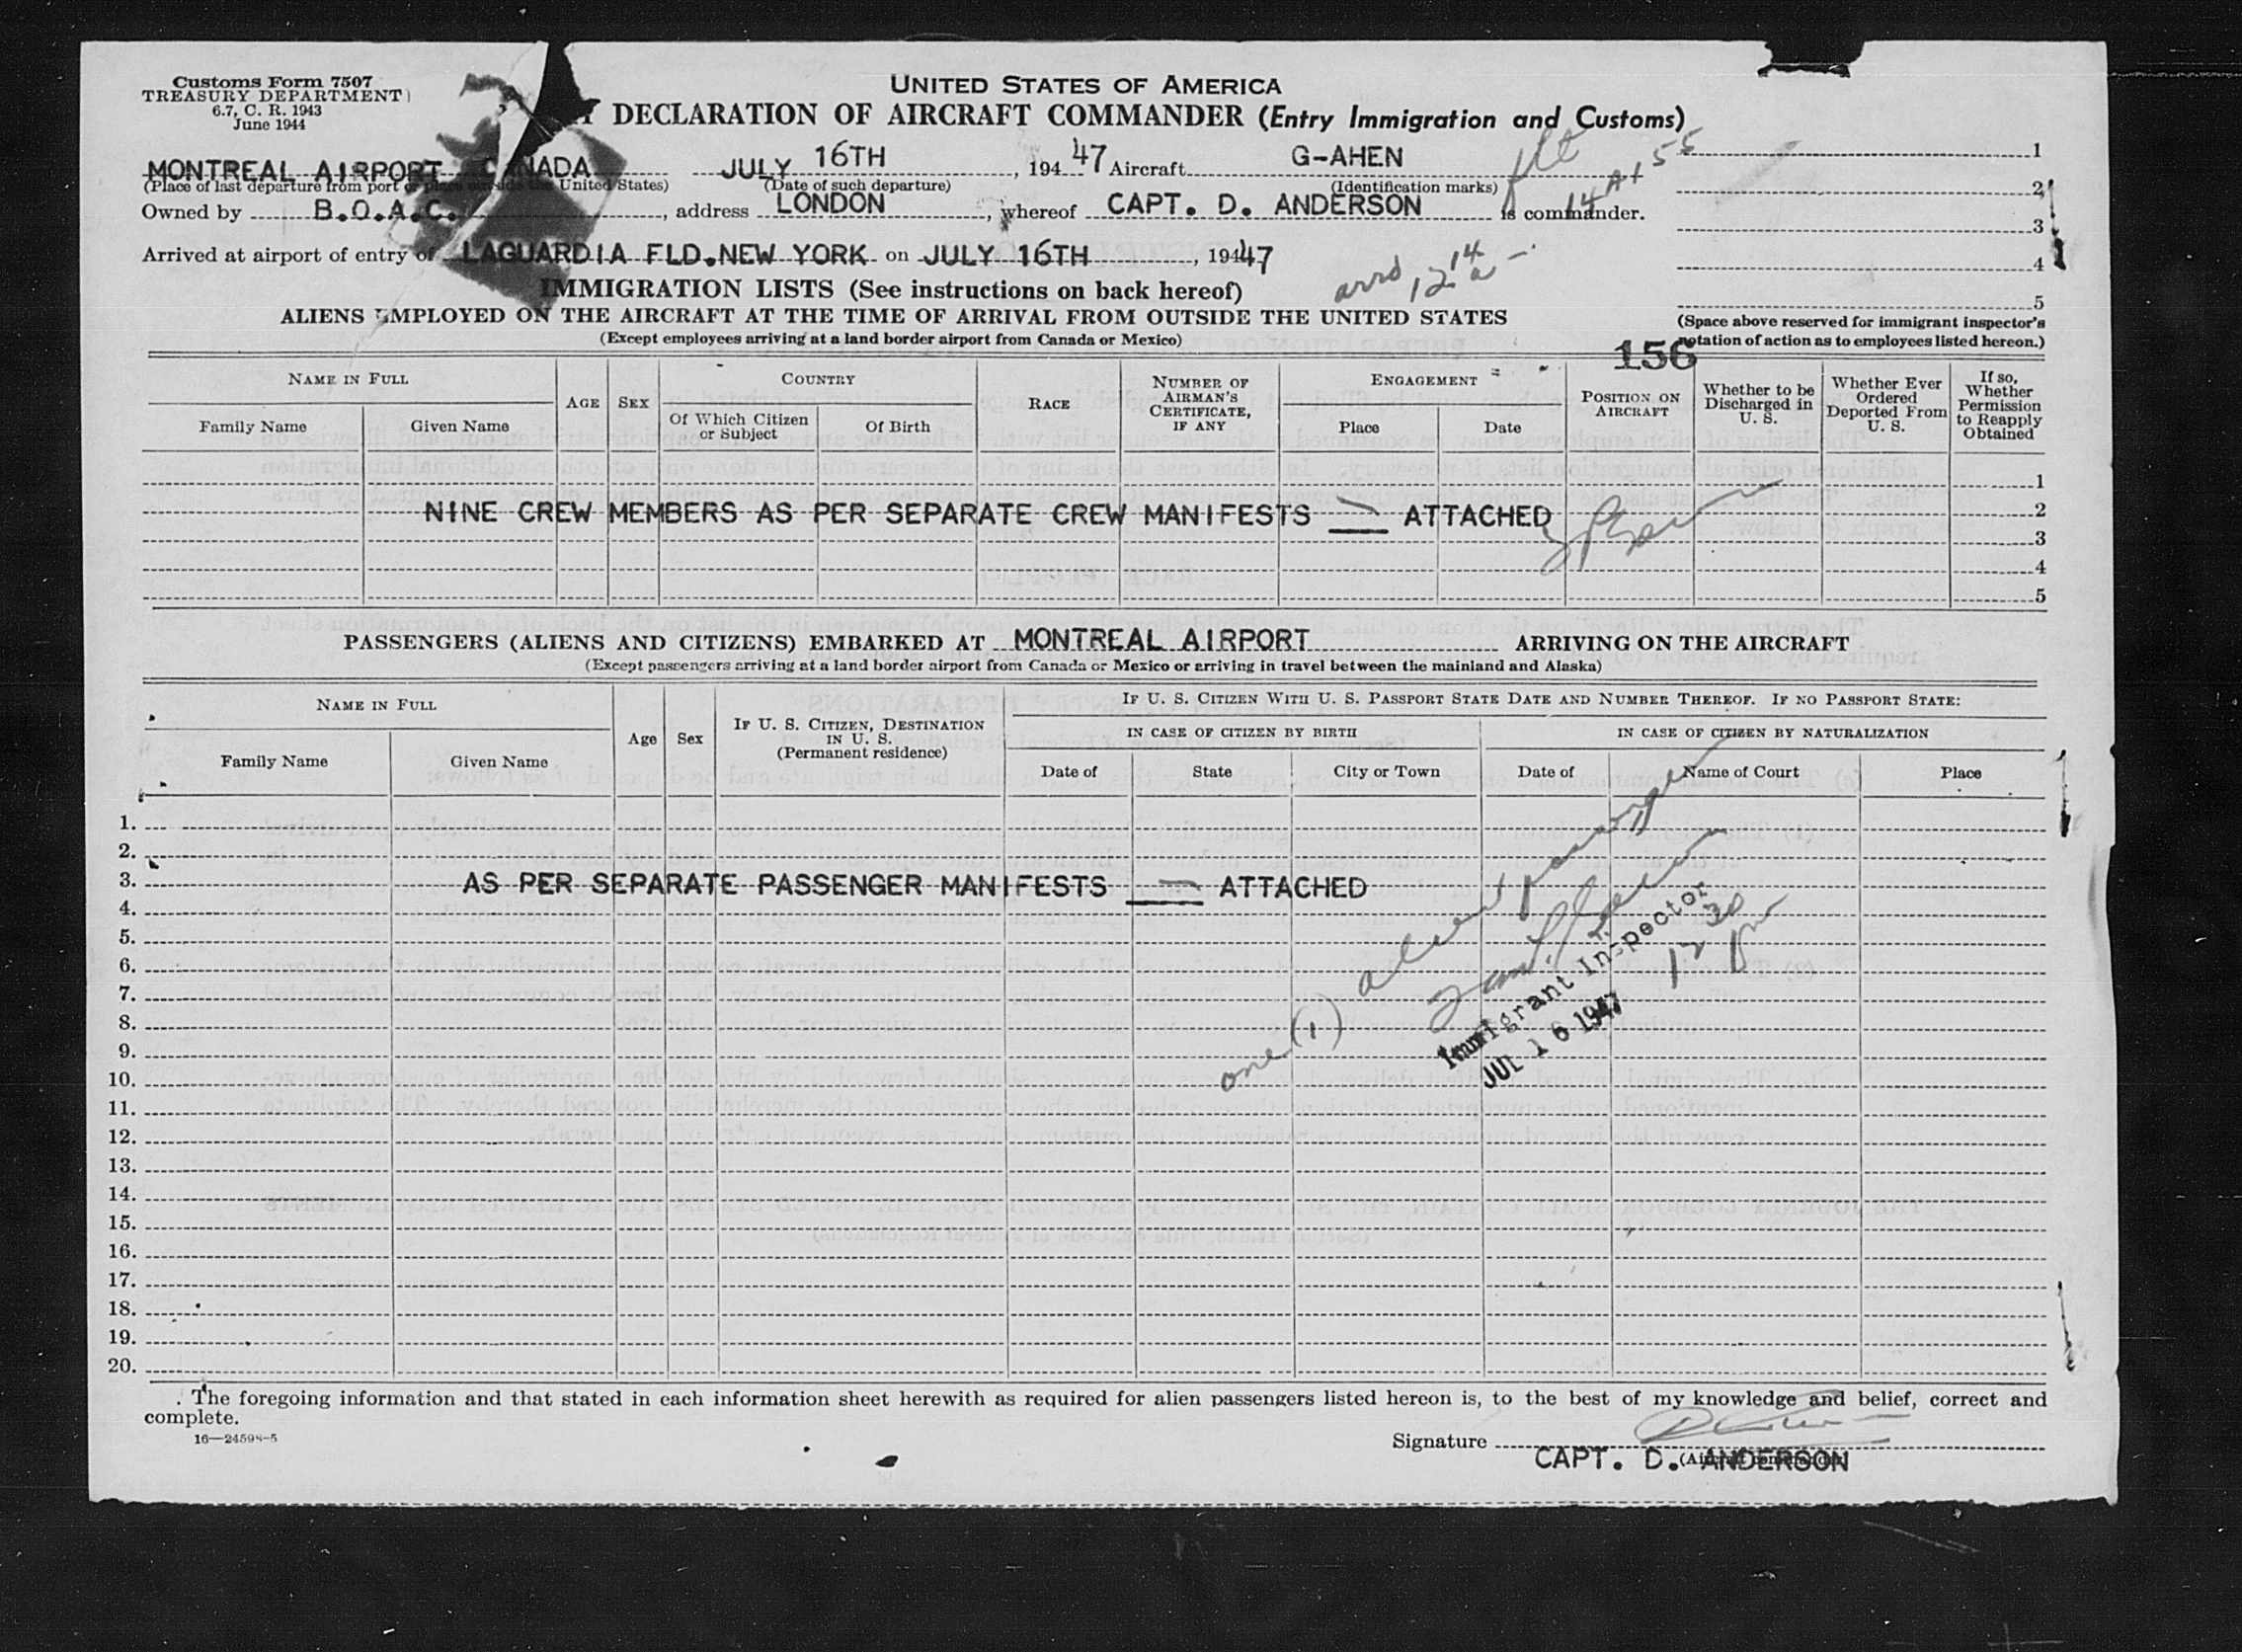 Customs Form 7507
TREASURY DEPARTMENT
6.7, C. R. 1943
June 1944
UNITED STATES OF AMERICA
DECLARATION OF AIRCRAFT COMMANDER (Entry Immigration and Customs)
MONTREAL AIRPORT CANADA JULY 16TH, 194 47 Aircraft G-AHEN
(Place of last departure from port or place outside the United States) (Date of such departure) (Identification marks)
Owned by B.O.A.C., address LONDON, whereof CAPT. D. ANDERSON is commander.
Arrived at airport of entry of LAGUARDIA FLD. NEW YORK on JULY 16TH, 19447
arrd 12 14 a
1
2
3
4
5
(Space above reserved for immigrant inspector's notation of action as to employees listed hereon.)
IMMIGRATION LISTS (See instructions on back hereof)
ALIENS EMPLOYED ON THE AIRCRAFT AT THE TIME OF ARRIVAL FROM OUTSIDE THE UNITED STATES
(Except employees arriving at a land border airport from Canada or Mexico)
156
NAME IN FULL
Family Name
Given Name
AGE
SEX
COUNTRY
Of Which Citizen or Subject
Of Birth
RACE
NUMBER OF AIRMAN'S CERTIFICATE, IF ANY
ENGAGEMENT
Place
Date
POSITION ON AIRCRAFT
Whether to be Discharged in U. S.
Whether Ever Ordered Deported From U. S.
If so, Whether Permission to Reapply Obtained
1
NINE CREW MEMBERS AS PER SEPARATE CREW MANIFESTS ATTACHED 2
3
4
5
PASSENGERS (ALIENS AND CITIZENS) EMBARKED AT MONTREAL AIRPORT ARRIVING ON THE AIRCRAFT
(Except passengers arriving at a land border airport from Canada or Mexico or arriving in travel between the mainland and Alaska)
NAME IN FULL
Family Name
Given Name
Age
Sex
IF U. S. CITIZEN, DESTINATION IN U. S. (Permanent residence)
IF U. S. CITIZEN WITH U. S. PASSPORT STATE DATE AND NUMBER THEREOF. IF NO PASSPORT STATE:
IN CASE OF CITIZEN BY BIRTH
Date of
State
City or Town
IN CASE OF CITIZEN BY NATURALIZATION
Date of
Name of Court
Place
1.
2.
3. AS PER SEPARATE PASSENGER MANIFESTS ATTACHED
4.
5.
6.
7.
8.
9.
10.
11.
12.
13.
14.
15.
16.
17.
18.
19.
20.
one (1) alien passenger
Immigrant Inspector
JUL 16 1947
12 30 pm
The foregoing information and that stated in each information sheet herewith as required for alien passengers listed hereon is, to the best of my knowledge and belief, correct and
complete.
16—24598-5
Signature
CAPT. D. ANDERSON
(Aircraft commander)